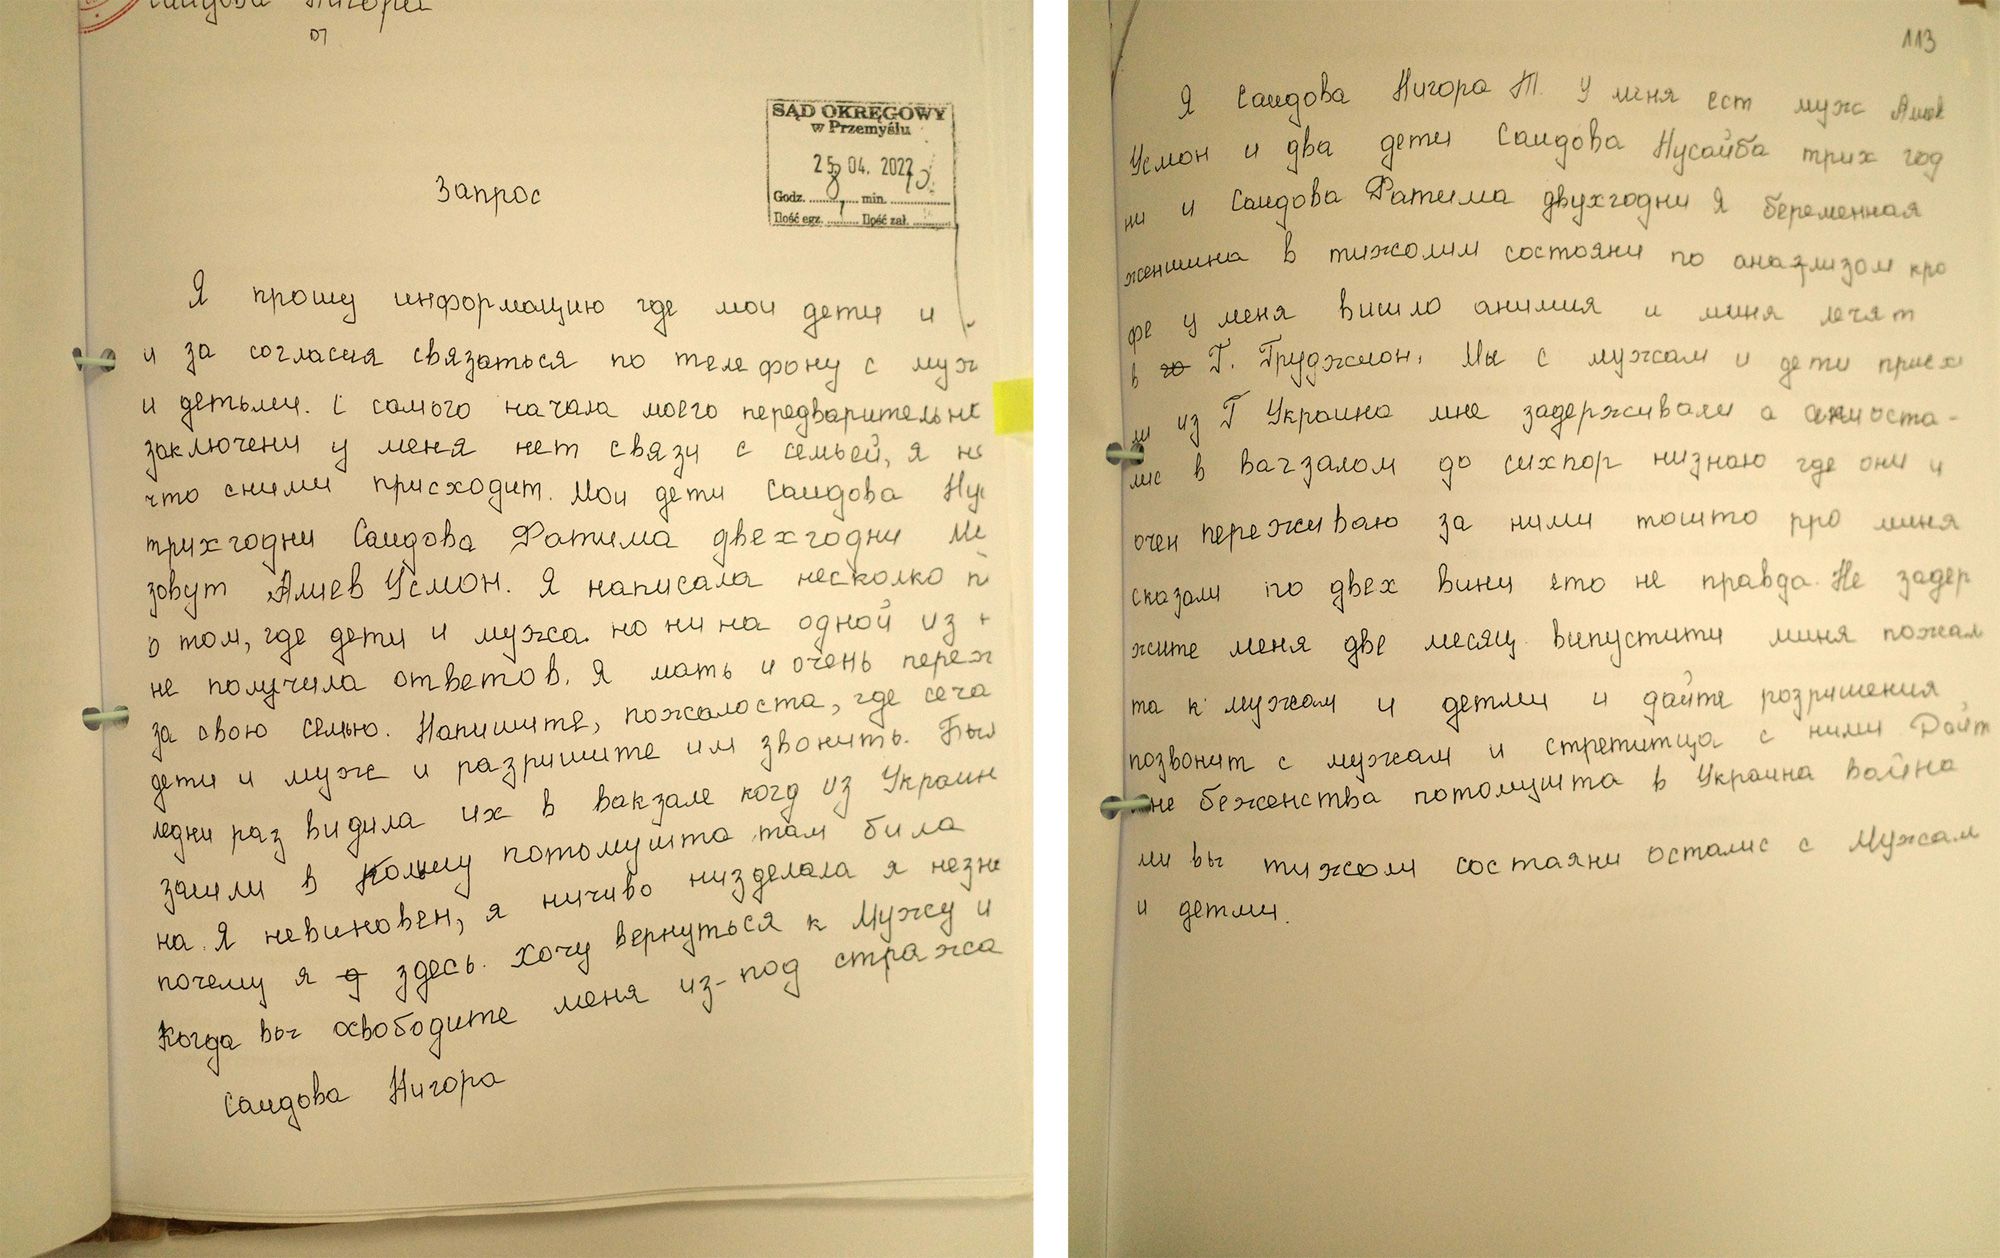 Саидова Нигора
SĄD OKRĘGOWY
w Przemyślu
04. 2022
Godz. 8 min. 10
Ilość egz. 1 Ilość zał.
Запрос
Я прошу информацию где мои дети и
и за согласия связаться по телефону с муж
и детьми. С самого начала моего передварительно
заключени у меня нет связи с семьей, я не
что сними присходит. Мои дети Саидова Нус
трихгодни Саидова Фатима двехгодни
зовут Алиев Усмон. Я написала несколко п
о том, где дети и мужа. но ни на одной из
не получила ответов. Я мать и очень переж
за свою семью. Напишите, пожалоста, где сеча
дети и муж и разришите им звонить. Был
ледни раз видила их в вакзале когд из Украин
зашли в Полшу потомушта там била
на. Я невиновен, я ничиво низделала я незна
почему я здесь. хочу вернуться к Мужу и
Когда вы освободите меня из-под стража
Саидова Нигора
113
Я Саидова Нигора Т. У меня ест муж Алиев
Усмон и два дети Саидова Нусайба трих год
ни и Саидова Фатима двухгодни Я беременная
женшина в тижолим состояни по анализом кро
фе у меня вишло анимия и миня лечят
в Г. Груджион. Мы с мужам и дети приех
ли из Г Украина мне задерживали а они оста-
лис в вагзалом до сихпор низнаю где они и
очен переживаю за ними тошто про миня
сказали по двех вини ето не правда. Не задер
жите меня две месяц випустити миня пожал
та к мужам и детми и дайте розришения
позвонит с мужам и стретитца с ними Дайт
мне беженства потомушта в Украина война
ми вы тижоли состаяни осталис с Мужам
и детми.